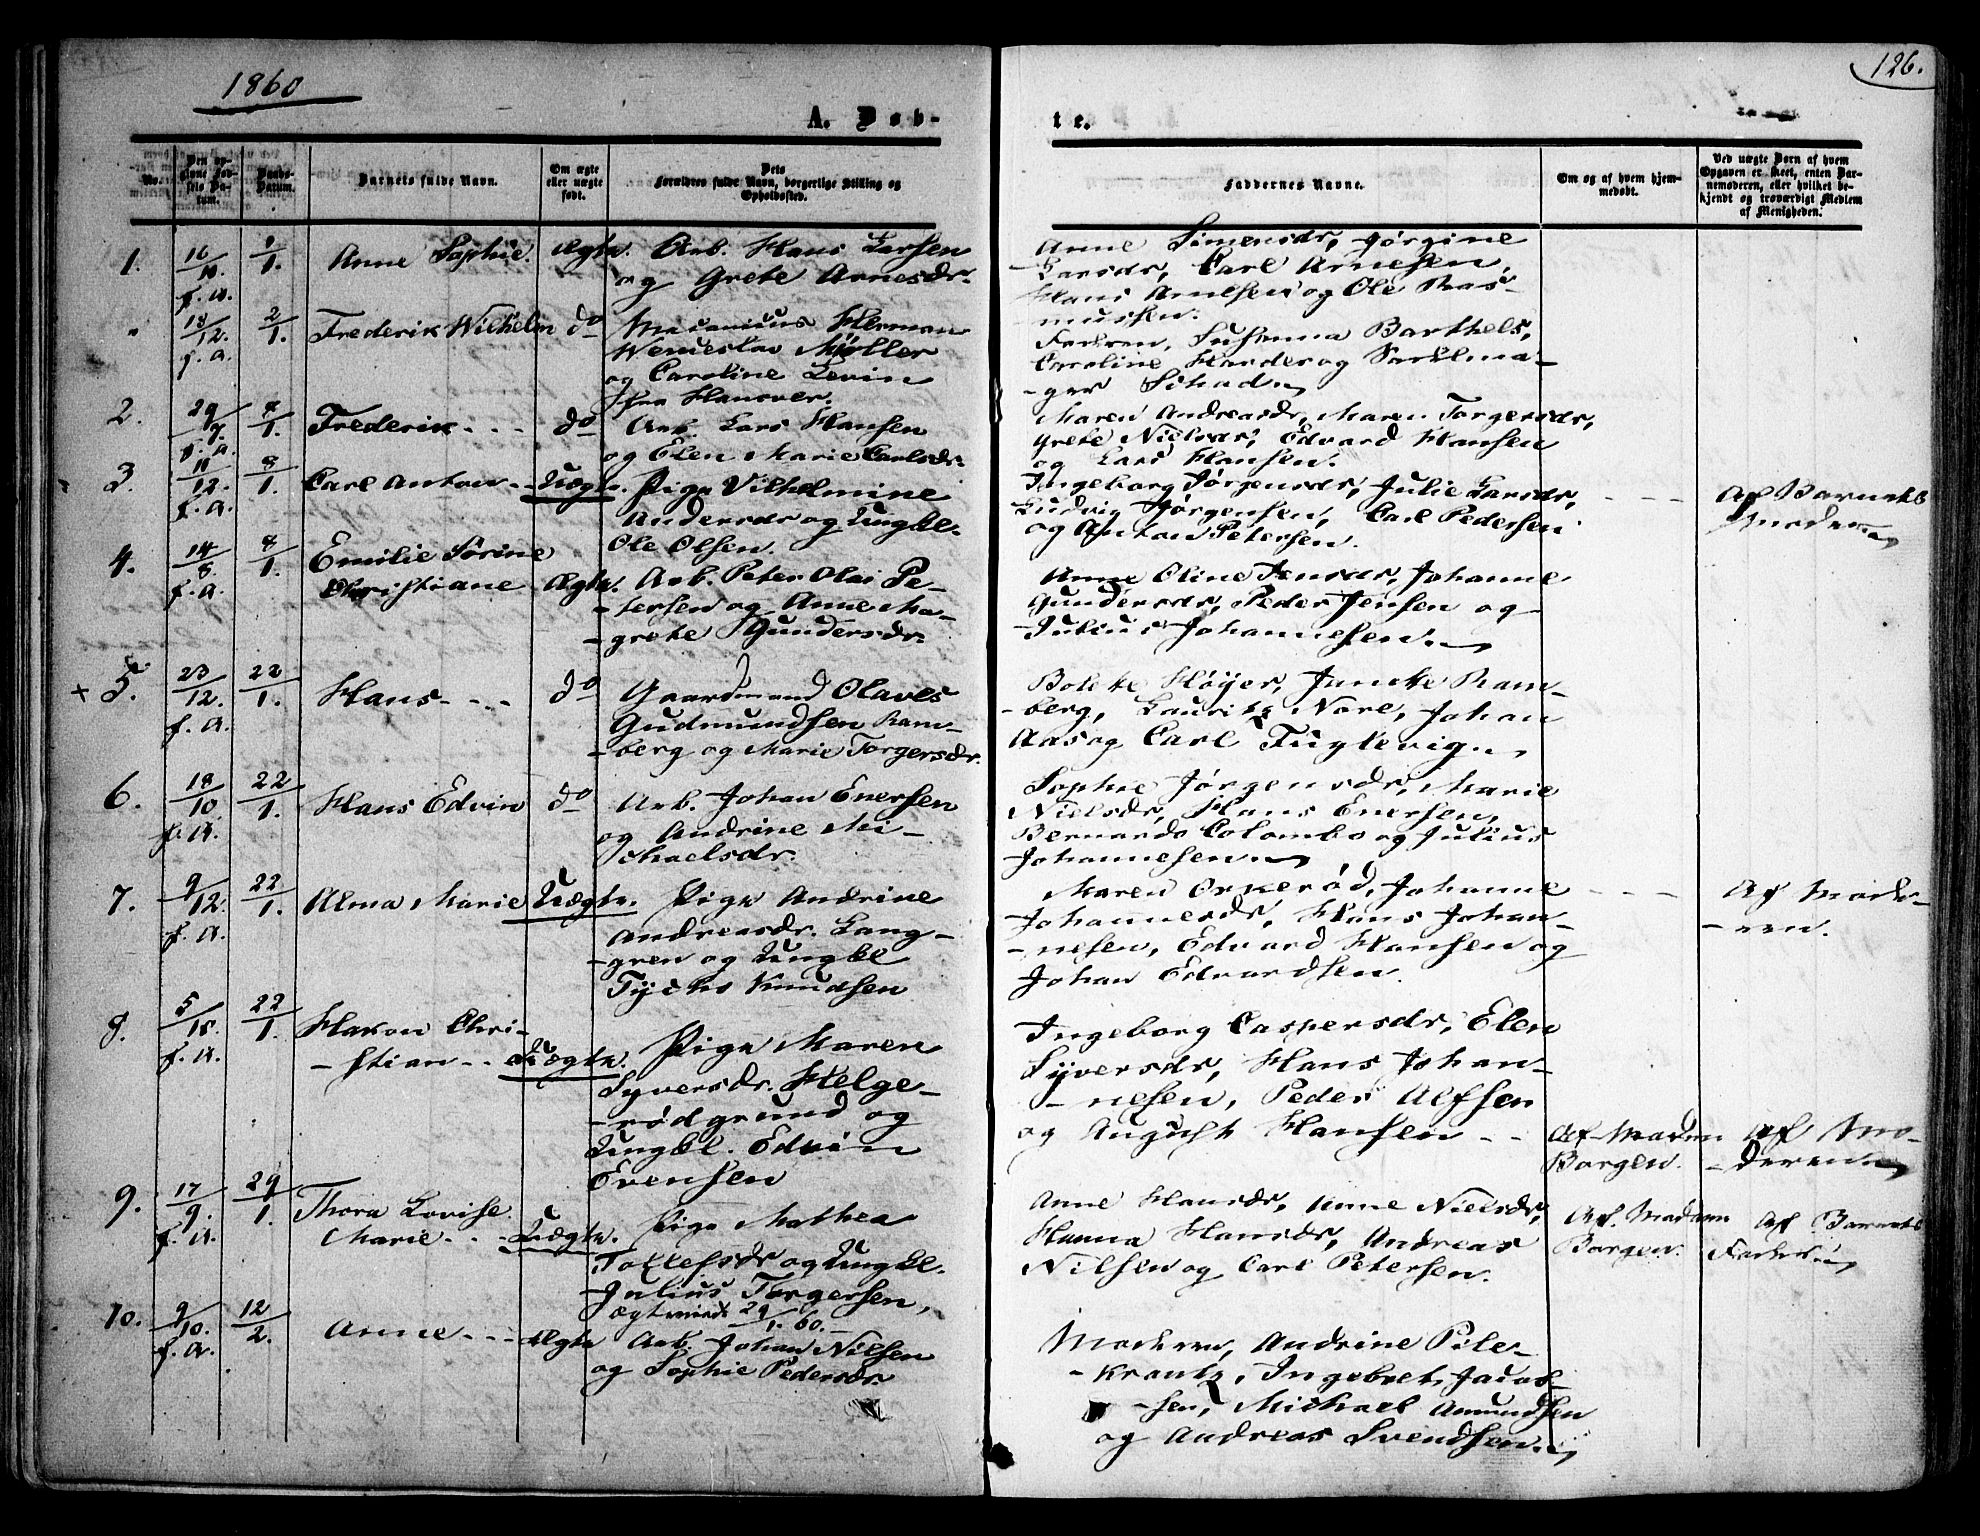 1860
126.
A. Døb-
te.
No.
Den opgivne Fødsels Datum.
Daabs-Datum.
Barnets fulde Navn.
Om ægte eller uægte født.
Dets Forældres fulde Navn, borgerlige Stilling og Opholdssted.
Faddernes Navne.
Om og af hvem hjemmedøbt.
Ved uægte Børn af hvem Opgaven er skeet, enten Barnemoderen, eller hvilket bekjendt og troværdigt Medlem af Menigheden.
1.
16/10. f.A.
1/1.
Anne Sophie.
Ægte.
Arb. Hans Larsen
og Grete Arnesdr.
Anne Simensdr, Jørgine
Larsdr, Carl Arnesen,
Hans Arnesen og Ole Ras-
mussen.
18/12. f.a.
2/1.
Frederik Wilhelm
do
Macarius Herman
Wenceslav Møller
og Caroline Levin
fra Hanover.
Faderen, Susanna Barthels,
Caroline Harder og Sadelma-
ger Schad
2.
29/7. f.a.
8/1.
Frederik - - -
do
Arb. Lars Hansen
og Elen Marie Carlsdr.
Maren Andreasdr, Maren Torgersdr,
Grete Nielsdr, Edvard Hansen
og Lars Hansen.
3.
11/12. f.a.
8/1.
Carl Anton - -
Uægte.
Pige Vilhelmine
Andersdr og Ungkl.
Ole Olsen.
Ingeborg Jørgensdr, Julie Larsdr,
Ludvig Jørgensen, Carl Pedersen
og Anton Petersen.
- - - -
Af Barnets
Moder
4.
14/8. f.a.
8/1.
Emilie Sørine
Christiane
Ægte.
Arb. Peter Olai Pe-
-tersen og Anne Ma-
-grete Gundersdr.
Anne Oline Jensdr, Johanne
Gundersdr, Peder Jensen og
Julius Johannesen.
+ 5.
23/12. f.A.
22/1.
Hans - - -
do
Gaardmand Olaves
Gudmundsen Ram-
-berg og Marie Torgersdr.
Bolette Høyer, Ram-
-berg, Lauritz Nore, Johan
Aas og Carl Fuglevig.
6.
18/10. f.A.
22/1.
Hans Edvin
do
Arb. Johan Enersen
og Andrine Mi-
chaelsdr.
Sophie Jørgensdr, Marie
Nielsdr, Hans Enersen,
Bernardo Colombo og Julius
Johannesen.
7.
9/12. f.A.
22/1.
Alma Marie
Uægte.
Pige Andrine
Andreasdr. Lang-
-gren og Ungkl
Tycho Knudsen
Maren Ørkerød, Johanne
Johannesdr, Hans Johan-
-nesen, Edvard Hansen og
Johan Edvardsen.
- - - -
Af Mode-
-ren.
8.
f.A.
22/1.
Hakon Chri-
-stian - -
Uægte.
Pige Maren
Syversdr. Helge-
-rødgrund og
Ungkl. Edvin
Evensen
Ingeborg Caspersdr, Elen
Syversdr, Hans Johan-
-nesen, Peder Alfsen
og August Hansen - -
Af Madam
Borgen.
Af Mo-
-deren
9.
17/9. f.A.
29/1.
Thora Lovise
Marie. - -
Uægte.
Pige Mathea
Tollefsdr og Ungkl.
Julius Torgersen,
ægteviede 29/1. 60.
Anne Hansdr, Anne Nielsdr,
Hanna Hansdr, Andreas
Nilsen og Carl Petersen.
Af. Madam
Borgen.
Af Barnets
Fader
10.
9/10. f.A.
12/2.
Anne - - -
Ægte
Arb. Johan Nilsen
og Sophie Pedersdr
Moderen, Andrine Pile-
-krantz, Ingebret Jacob-
-sen, Michael Amundsen
og Andreas Svendsen.